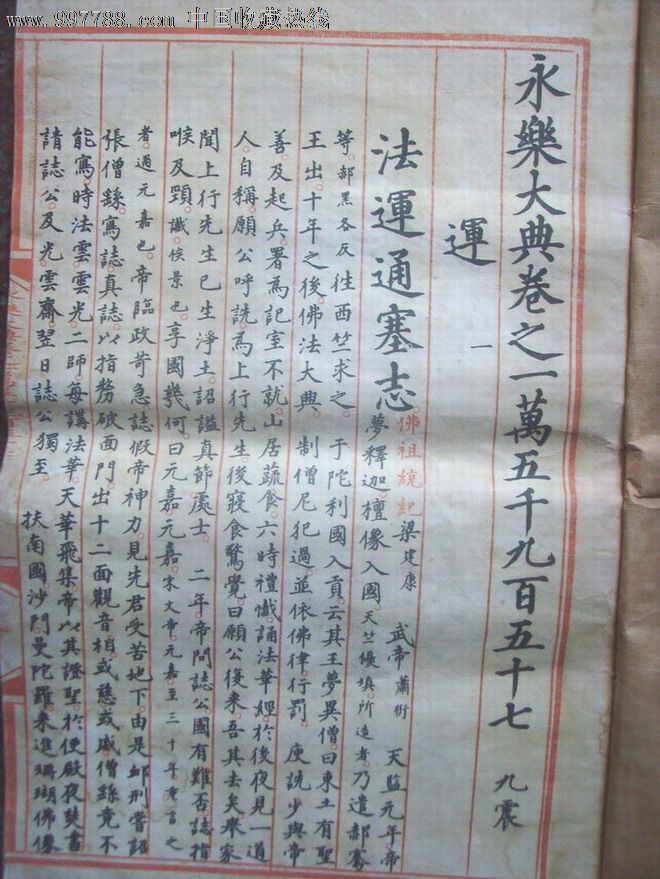 www.997788.com 中国收藏热线
永樂大典卷之一萬五千九百五十七 九震
運 一
法運通塞志 佛祖統紀 梁建康 武帝蕭衍 天監元年帝
夢釋迦檀像入國天竺優填所造者乃遣郝騫
等郝黑各反往西竺求之 于陀利國入貢云其王夢異僧曰東土有聖
王出十年之後佛法大興 制僧尼犯過並依佛律行罰 庾詵少與帝
善及起兵署為記室不就山居蔬食六時禮懺誦法華經於後夜見一道
人自稱願公呼詵為上行先生後寢食驚覺曰願公後來吾其去矣眾家
聞上行先生已生淨土詔謚真節處士 二年帝問誌公國有難否誌指
喉及頸讖侯景也享國幾何曰元嘉元嘉宋文帝元嘉至三十年重言之
者過元嘉也帝臨政苛急誌假帝神力見先君受苦地下由是卹刑嘗詔
張僧繇寫誌真誌以指剺破面門出十二面觀音相或慈或威僧繇竟不
能寫時法雲雲光二師每講法華天華飛集帝以其證聖於便殿夜焚書
請誌公及光雲齋翌日誌公獨至 扶南國沙門曼陀羅來進珊瑚佛像